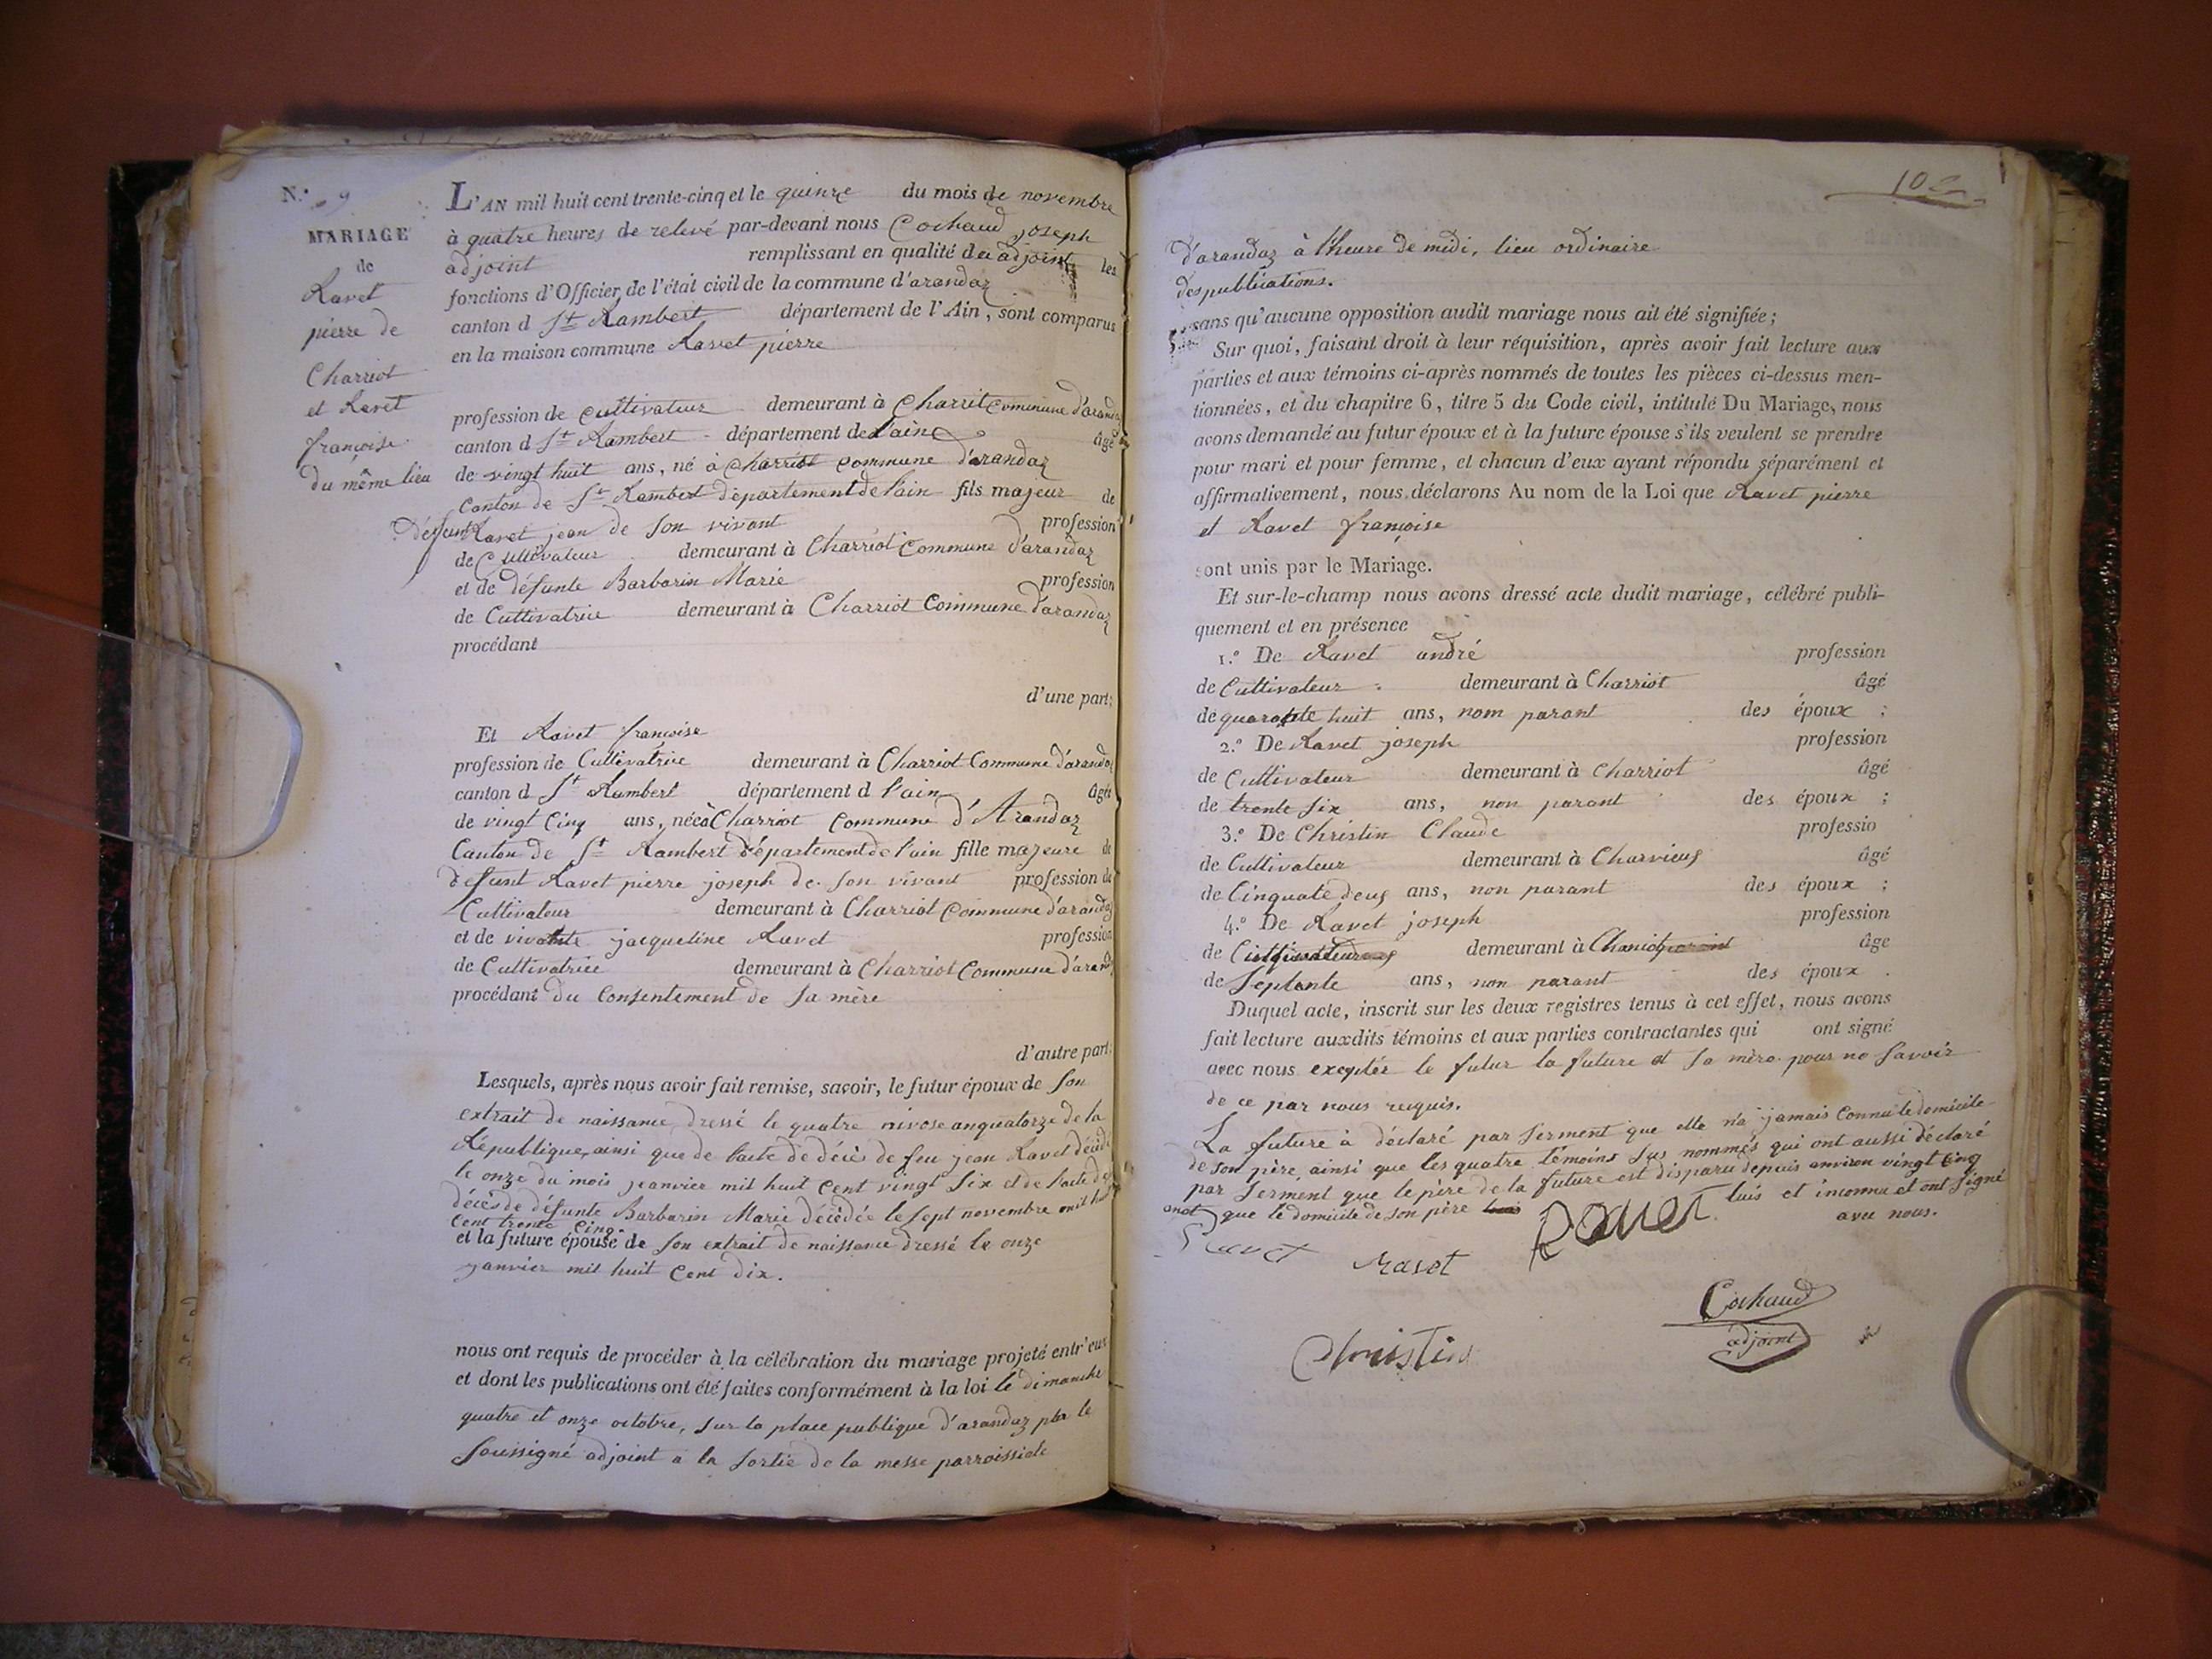 N.° 9
MARIAGE
de
Ravet
pierre de
Charriot
et Ravet
françoise
du même lieu
L'AN mil huit cent trente-cinq et le quinze du mois de novembre
à quatre heures de relevé par-devant nous Cochaud joseph
adjoint remplissant en qualité de adjoint les
fonctions d'Officier de l'état civil de la commune d'arandaz
canton d St Rambert département de l'Ain, sont comparus
en la maison commune Ravet pierre
profession de cultivateur demeurant à Charriot commune d'arandaz
canton d St Rambert département de l'ain âgé
de vingt huit ans, né à Charriot commune d'arandaz
Canton de St Rambert département de l'ain fils majeur de
défunt Ravet jean de son vivant profession
de Cultivateur demeurant à Charriot Commune d'arandaz
et de défunte Barbarin Marie profession
de Cultivatrice demeurant à Charriot Commune d'arandaz
procédant
d'une part;
Et Ravet françoise
profession de Cultivatrice demeurant à Charriot Commune d'arandaz
canton d St Rambert département d l'ain âgée
de vingt cinq ans, née à Charriot Commune d'Arandaz
Canton de St Rambert département de l'ain fille majeure de
défunt Ravet pierre joseph de son vivant profession de
Cultivateur demeurant à Charriot Commune d'arandaz
et de vivante jacqueline Ravet profession
de Cultivatrice demeurant à Charriot Commune d'arandaz
procédant du Consentement de sa mère
d'autre part;
Lesquels, après nous avoir fait remise, savoir, le futur époux de son
extrait de naissance dressé le quatre nivose an quatorze de la
République, ainsi que de l'acte de décès de feu jean Ravet décédé
le onze du mois jeanvier mil huit Cent vingt six et de l'acte de
décès de défunte Barbarin Marie décédée le sept novembre mil huit
Cent trente Cinq.
et la future épouse de son extrait de naissance dressé le onze
janvier mil huit Cent dix.
nous ont requis de procéder à la célébration du mariage projeté entr'eux
et dont les publications ont été faites conformément à la loi le dimanche
quatre et onze octobre, sur la place publique d'arandaz par le
soussigné adjoint a la sortie de la messe parroissiale
d'arandaz à l'heure de midi, lieu ordinaire
des publications.
sans qu'aucune opposition audit mariage nous ait été signifiée;
Sur quoi, faisant droit à leur réquisition, après avoir fait lecture aux
parties et aux témoins ci-après nommés de toutes les pièces ci-dessus men-
tionnées, et du chapitre 6, titre 5 du Code civil, intitulé Du Mariage, nous
avons demandé au futur époux et à la future épouse s'ils veulent se prendre
pour mari et pour femme, et chacun d'eux ayant répondu séparément et
affirmativement, nous déclarons Au nom de la Loi que Ravet pierre
et Ravet françoise
sont unis par le Mariage.
Et sur-le-champ nous avons dressé acte dudit mariage, célébré publi-
quement et en présence
1.° De Ravet andré profession
de Cultivateur demeurant à Charriot âgé
de quarante huit ans, nom parant des époux ;
2.° De Ravet joseph profession
de Cultivateur demeurant à Charriot âgé
de trente six ans, non parant des époux ;
3.° De Christin Claude professio
de Cultivateur demeurant à Charvieux âgé
de Cinquate deux ans, non parant des époux ;
4.° De Ravet joseph profession
de demeurant à Charriot âge
de Septante ans, non parant des époux .
Duquel acte, inscrit sur les deux registres tenus à cet effet, nous avons
fait lecture auxdits témoins et aux parties contractantes qui ont signé
avec nous exceptés le futur la future et sa mère pour ne savoir
de ce par nous requis.
La future à déclaré par serment que elle n'a jamais Connu le domicile
de son père, ainsi que les quatre témoins sus nommés qui ont aussi déclaré
par serment que le père de la future est disparu depuis environ vingt Cinq
ans et que le domicile de son père luis et inconnu et ont signé
avec nous.
Ravet
Ravet
Ravet
Cochaud
adjoint
Christin